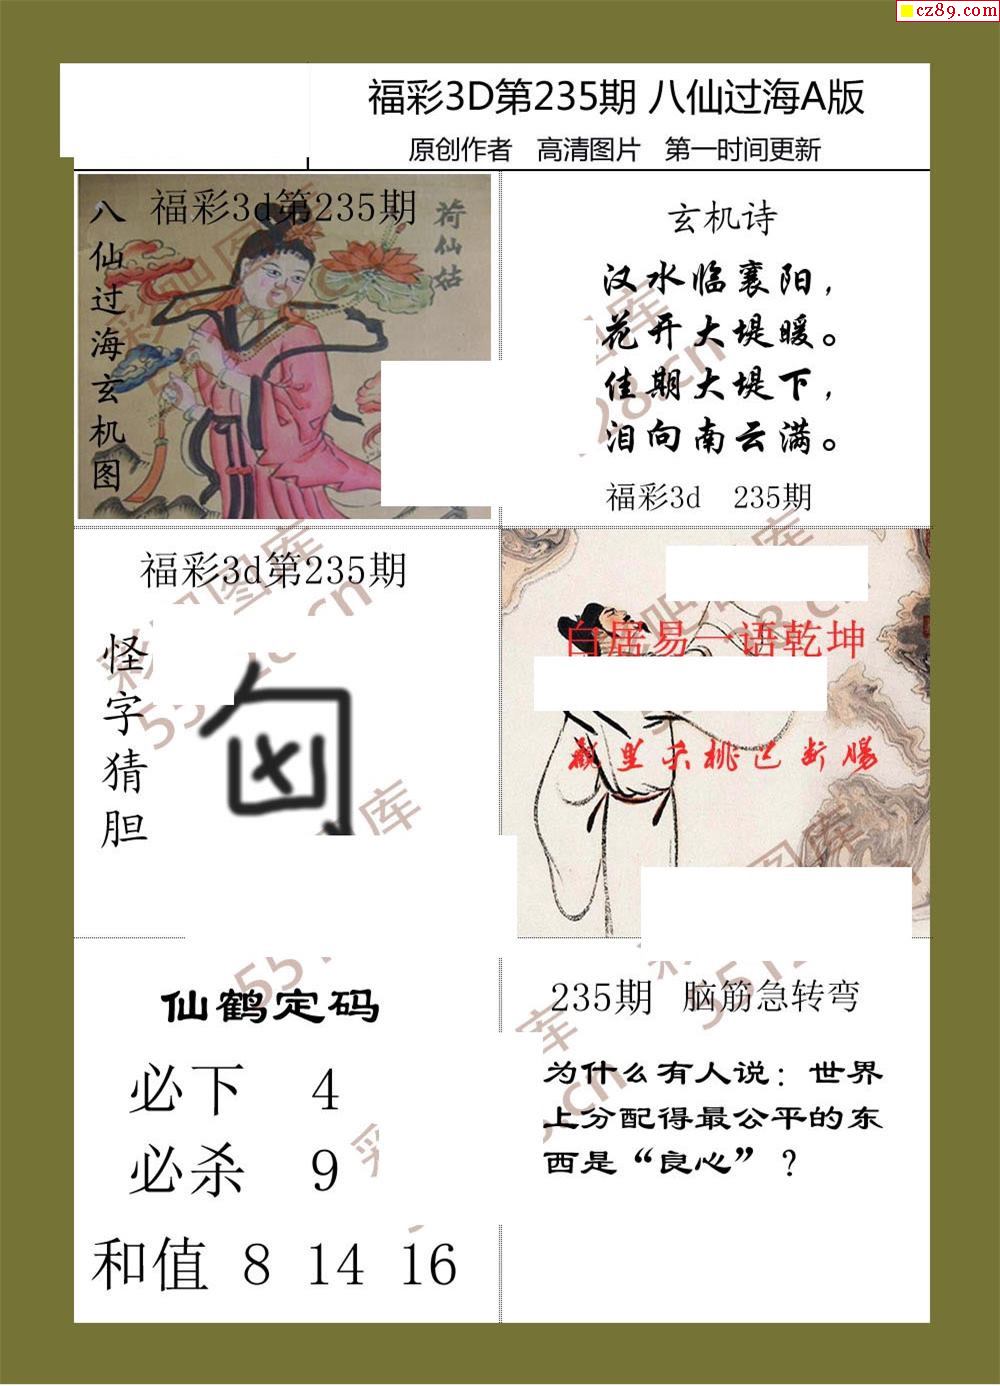 cz89.com
福彩3D第235期 八仙过海A版
原创作者 高清图片 第一时间更新
福彩3d第235期
八仙过海玄机图
荷仙姑
玄机诗
汉水临襄阳，
花开大堤暖。
佳期大堤下，
泪向南云满。
福彩3d 235期
福彩3d第235期
怪字猜胆
白居易一语乾坤
仙鹤定码
必下 4
必杀 9
和值 8 14 16
235期 脑筋急转弯
为什么有人说：世界
上分配得最公平的东
西是“良心”？